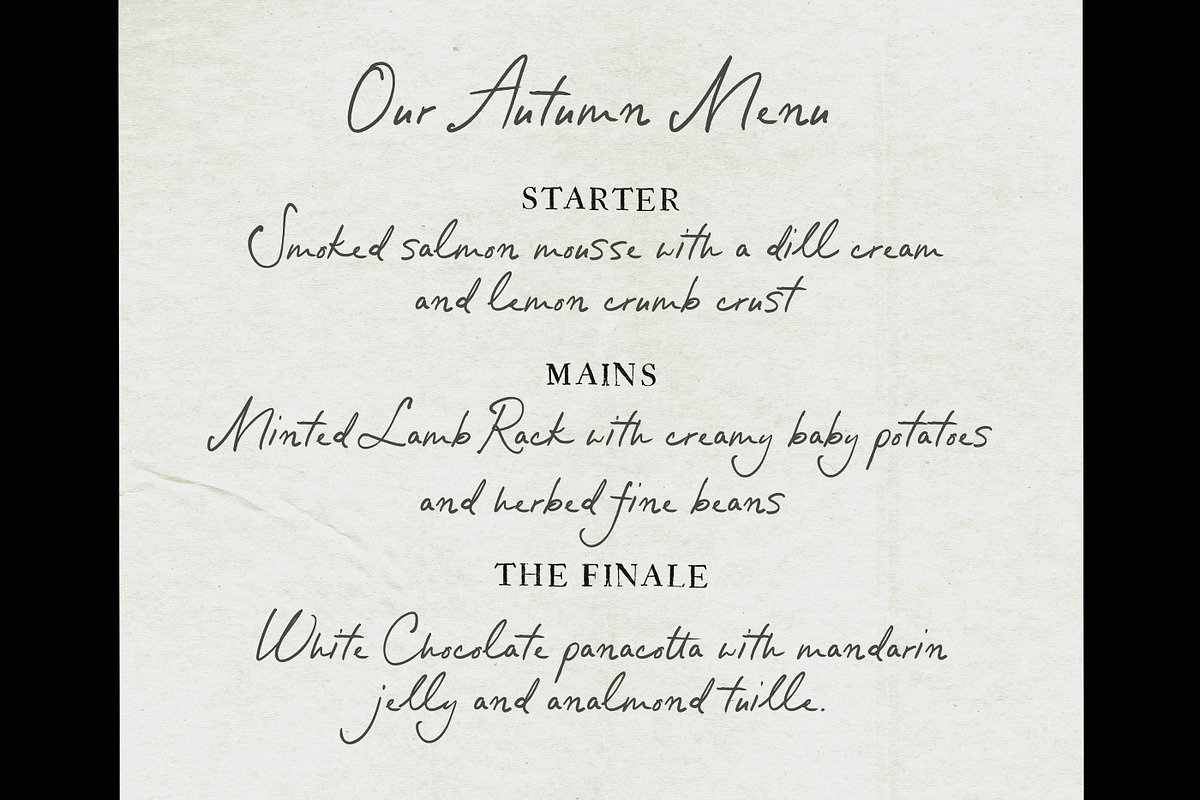 Our Autumn Menu
STARTER
Smoked salmon mousse with a dill cream
and lemon crumb crust
MAINS
Minted Lamb Rack with creamy baby potatoes
and herbed fine beans
THE FINALE
White Chocolate panacotta with mandarin
jelly and analmond tuille.